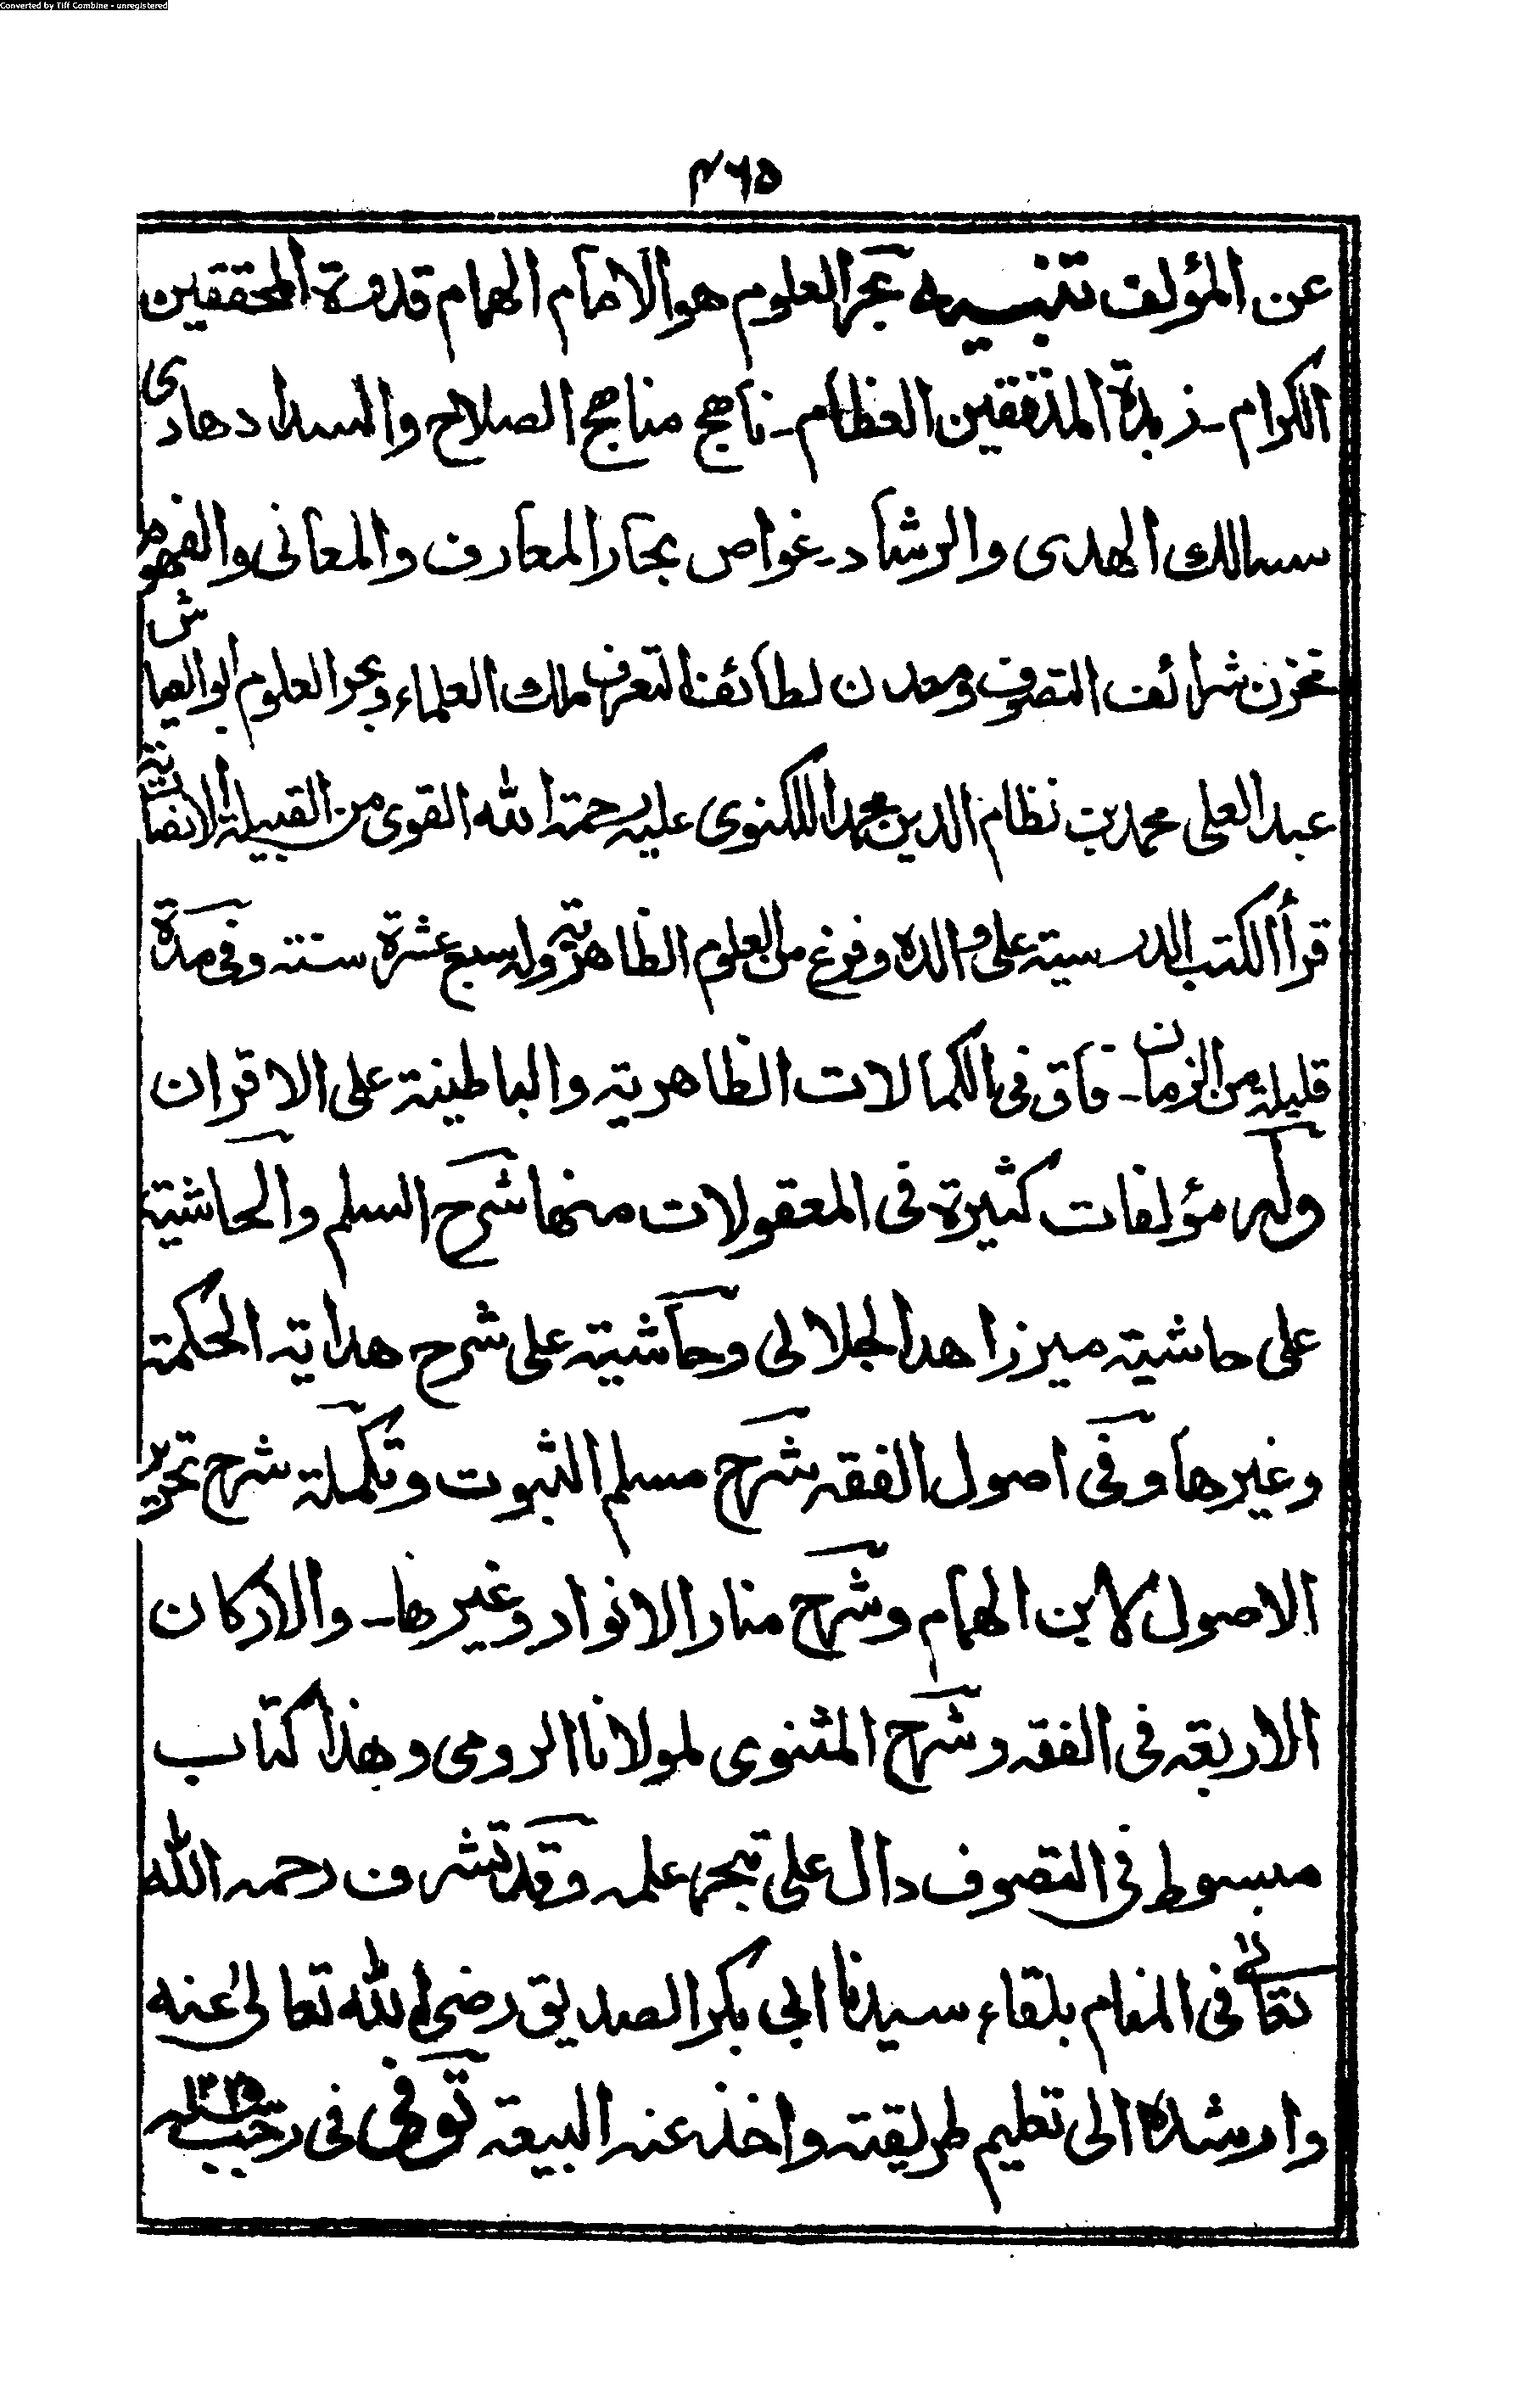 Converted by Tiff Combine - unregistered
۴۶۵
عن المؤلف تنبيه بحر العلوم هو الامام الهمام قدوة المحققين
الكرام ـ زبدة المدققين العظام ـ ناهج مناهج الصلاح والسداد هادى
سالك الهدى والرشاد ـ غواص بحار المعارف والمعانى والفهوم
مخزن شرائف التصوف ومعدن لطائف التعرف ملك العلماء وبحر العلوم ابو العياش
عبد العلى محمد بن نظام الدين محمد اللكنوى عليه رحمة الله القوى من القبيلة الانصارية
قرأ الكتب الدرسية على والده وفرغ من العلوم الظاهرية وله سبع عشرة سنة وفى مدة
قليلة من الزمان ـ فاق فى الكمالات الظاهرية والباطينة على الاقران
وله مؤلفات كثيرة فى المعقولات منها شرح السلم والحاشية
على حاشية ميرزاهد الجلالى وحاشية على شرح هداية الحكمة
وغيرها وفى اصول الفقه شرح مسلم الثبوت وتكملة شرح تحرير
الاصول لابن الهمام وشرح منار الانوار وغيرها ـ والاركان
الاربعة فى الفقه وشرح المثنوى لمولانا الرومى وهذا كتاب
مبسوط فى التصوف دال على تبحر علمه وقد تشرف رحمه الله
تعالى فى المنام بلقاء سيدنا ابى بكر الصديق رضى الله تعالى عنه
وارشده الى تعليم طريقته واخذ عنه البيعة توفى فى رجب